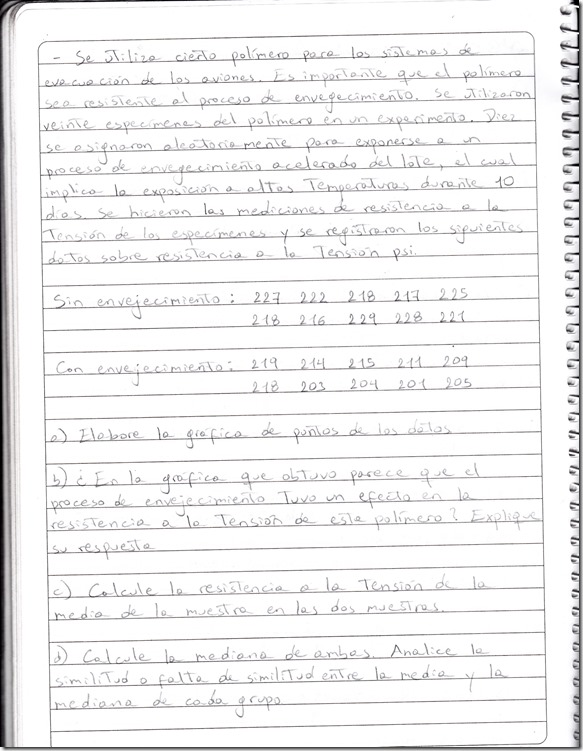 - Se utiliza cierto polímero para los sistemas de
evacuación de los aviones. Es importante que el polímero
sea resistente al proceso de envegecimiento. Se utilizaron
veinte especímenes del polímero en un experimento. Diez
se asignaron aleatoriamente para exponerse a un
proceso de envegecimiento acelerado del lote, el cual
implica la exposición a altas Temperaturas durante 10
días. Se hicieron las mediciones de resistencia a la
Tensión de los especímenes y se registraron los siguientes
datos sobre resistencia a la Tensión psi.
Sin envejecimiento: 227 222 218 217 225
218 216 229 228 221
Con envejecimiento: 219 214 215 211 209
218 203 204 201 205
a) Elabore la gráfica de puntos de los datos
b) ¿En la gráfica que obtuvo parece que el
proceso de envejecimiento Tuvo un efecto en la
resistencia a la Tensión de este polímero? Explique
su respuesta
c) Calcule la resistencia a la Tensión de la
media de la muestra en las dos muestras.
d) Calcule la mediana de ambas. Analice la
similitud o falta de similitud entre la media y la
mediana de cada grupo